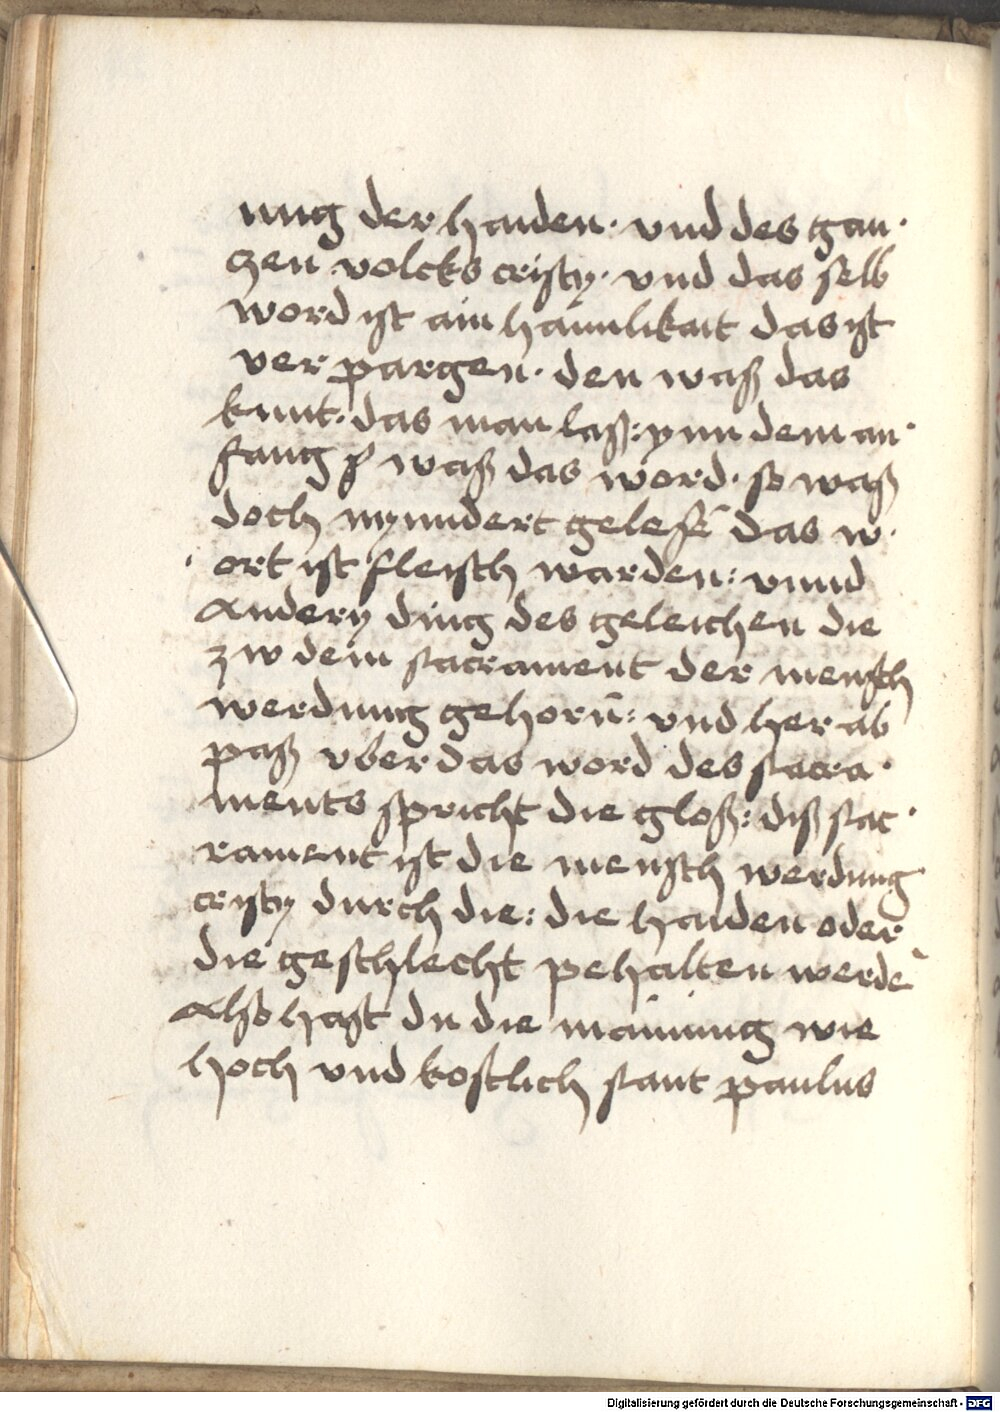 nung der haiden· vnd des gan·
czen volcks cristy· vnd das selb
word ist ain haimlikait das ist
ver pargen· den waß das
kunt· das man laß: ynn dem an·
fang waß das word· so waß
doch nyndert gelesē das w·
ort ist fleisch warden: vnnd
andery ding des geleichen die
zw dem sacrament der mensch
werdung gehorñ: vnd her ab
paß vber das word des sacra·
ments spricht die gloß: diß sac·
rament ist die mensch werdung
cristy durch die: die haiden oder
die geschlecht pehalten werdē
Also hast du die mainung wie
hoch vnd kostlich sant paulus
Digitalisierung gefördert durch die Deutsche Forschungsgemeinschaft - DFG